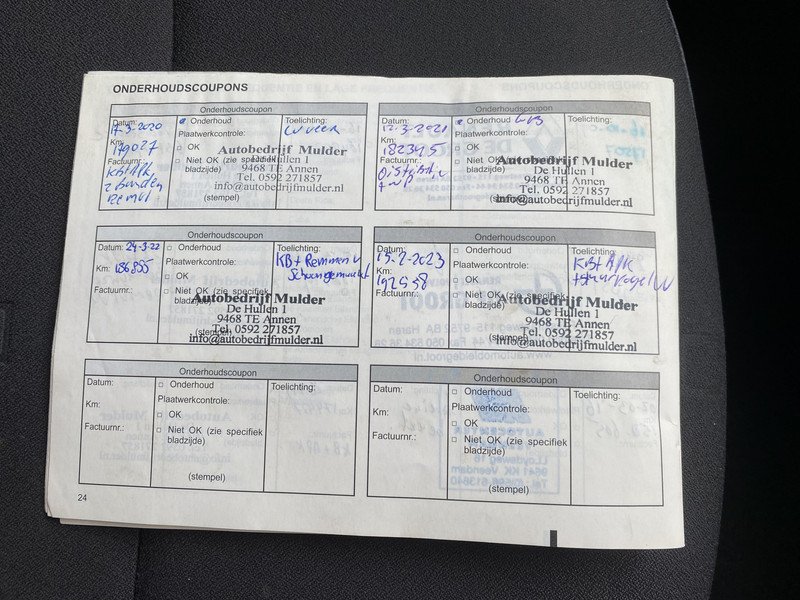 ONDERHOUDSCOUPONS
Onderhoudscoupon
Datum:
17-3-2020
Km:
179027
Factuurnr.:
2 banden
Onderhoud
Plaatwerkcontrole:
OK
Niet OK (zie specifiek bladzijde)
(stempel)
Toelichting:
Autobedrijf Mulder
De Hullen 1
9468 TE Annen
Tel. 0592 271857
info@autobedrijfmulder.nl
Onderhoudscoupon
Datum:
12-3-2021
Km:
182345
Factuurnr.:
Onderhoud
Plaatwerkcontrole:
OK
Niet OK (zie specifiek bladzijde)
(stempel)
Toelichting:
Autobedrijf Mulder
De Hullen 1
9468 TE Annen
Tel. 0592 271857
info@autobedrijfmulder.nl
Onderhoudscoupon
Datum: 24-3-22
Km: 186855
Factuurnr.:
Onderhoud
Plaatwerkcontrole:
OK
Niet OK (zie specifiek
bladzijde)
(stempel)
Toelichting:
KB + Remmen V
Schoongemaakt
Autobedrijf Mulder
De Hullen 1
9468 TE Annen
Tel. 0592 271857
info@autobedrijfmulder.nl
Onderhoudscoupon
Datum:
15-2-2023
Km:
192558
Factuurnr.:
Onderhoud
Plaatwerkcontrole:
OK
Niet OK (zie specifiek
bladzijde)
(stempel)
Toelichting:
KB + APK
Autobedrijf Mulder
De Hullen 1
9468 TE Annen
Tel. 0592 271857
info@autobedrijfmulder.nl
Onderhoudscoupon
Datum:
Km:
Factuurnr.:
Onderhoud
Plaatwerkcontrole:
OK
Niet OK (zie specifiek
bladzijde)
(stempel)
Toelichting:
Onderhoudscoupon
Datum:
Km:
Factuurnr.:
Onderhoud
Plaatwerkcontrole:
OK
Niet OK (zie specifiek
bladzijde)
(stempel)
Toelichting:
24